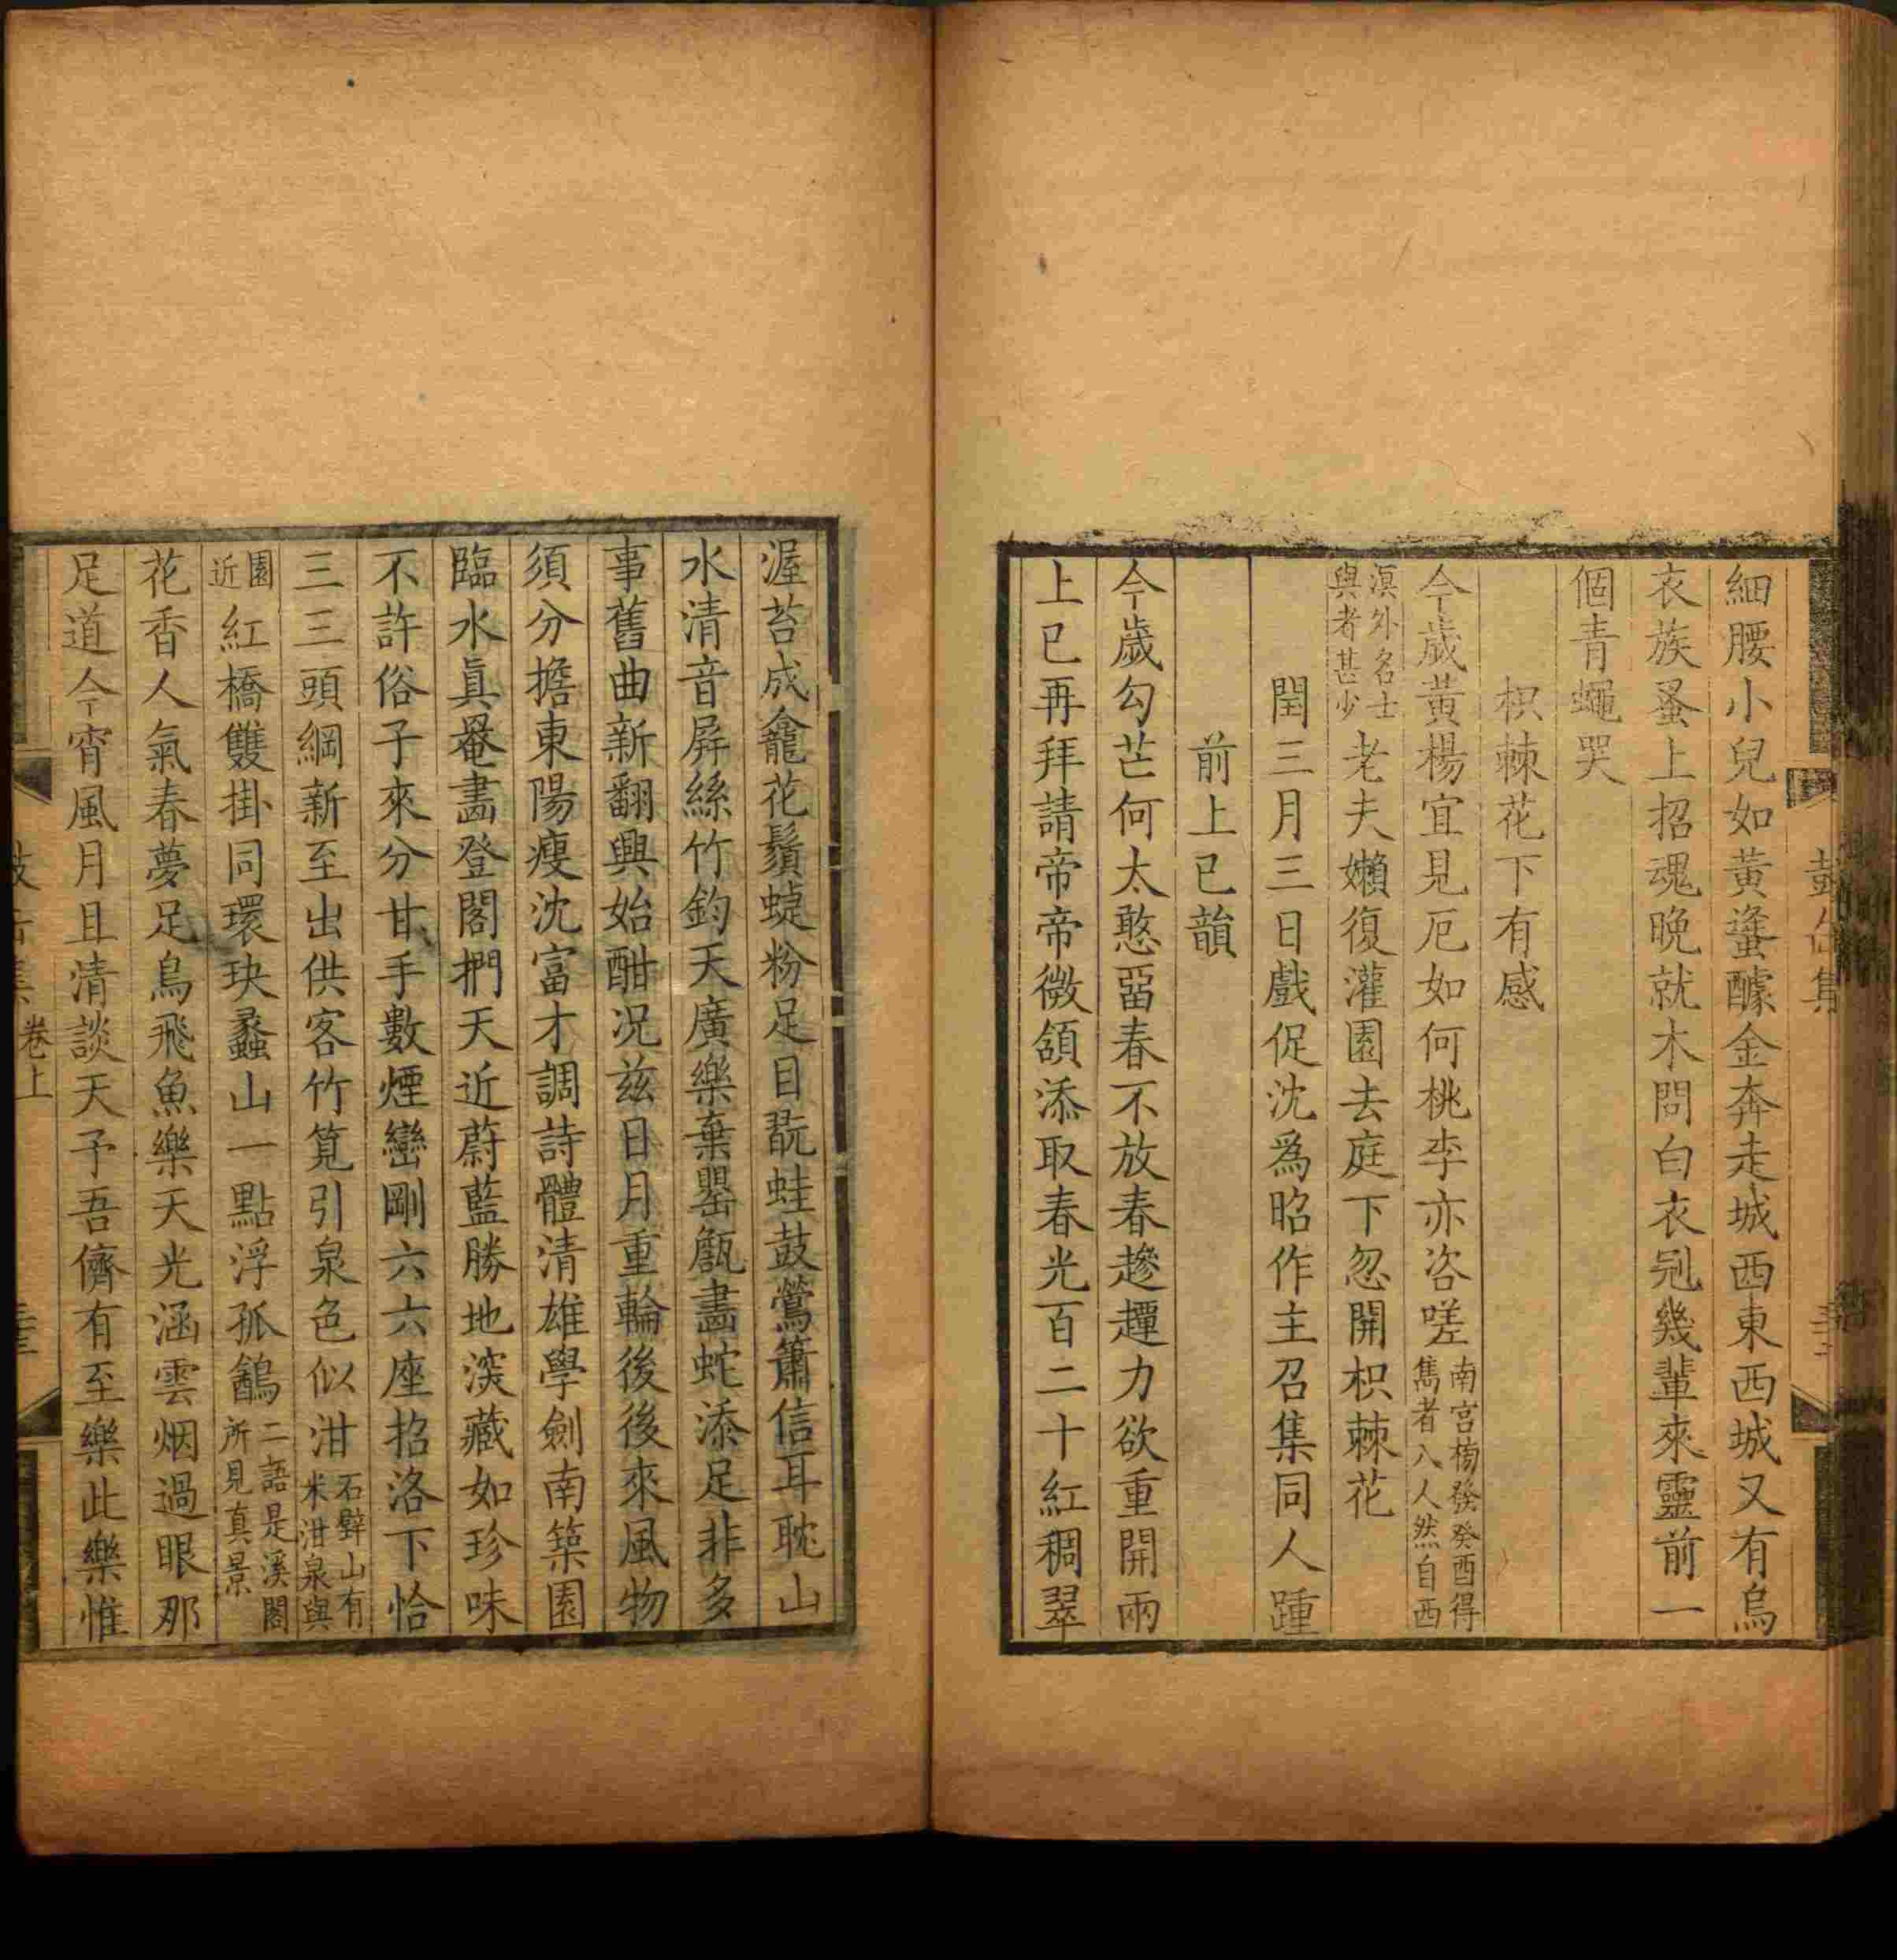 細腰小兒如黃蜂醵金奔走城西東西城又有烏
衣族蚤上招魂晚就木問白衣冠幾輩來靈前一
個青蠅哭
枳棘花下有感
今歲黃楊宜見厄如何桃李亦咨嗟南宮榜發癸酉得
雋者八人然自西
溟外名士
與者甚少老夫嬾復灌園去庭下忽開枳棘花
閏三月三日戲促沈爲昭作主召集同人踵
前上巳韻
今歲勾芒何太憨畱春不放春趁趯力欲重開兩
上巳再拜請帝帝微頷添取春光百二十紅稠翠
渥苔成龕花鬚蜨粉足目翫蛙鼓鶯簫信耳耽山
水清音屏絲竹鈞天廣樂棄罌甔畵蛇添足非多
事舊曲新翻興始酣况兹日月重輪後後來風物
須分擔東陽瘦沈富才調詩體清雄學劍南築園
臨水真罨畵登閣捫天近蔚藍勝地深藏如珍味
不許俗子來分甘手數煙巒剛六六座招洛下恰
三三頭綱新至出供客竹筧引泉色似泔石壁山有
米泔泉與
園
近紅橋雙掛同環玦蠡山一點浮孤鶴二語是溪閣
所見真景
花香人氣春夢足鳥飛魚樂天光涵雲烟過眼那
足道今宵風月且清談天予吾儕有至樂此樂惟
卷上